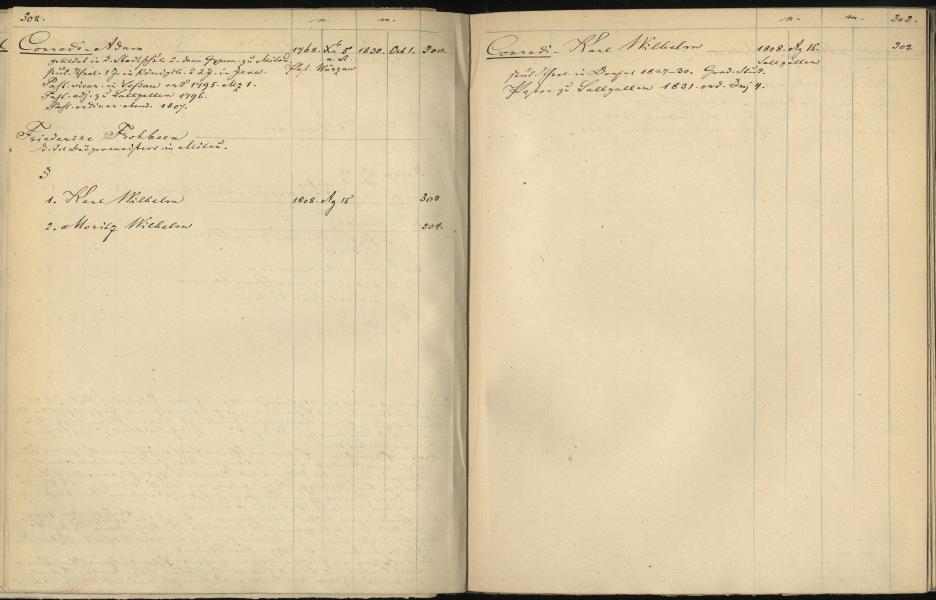 302. n. m.
Conradi - Adam 1768. 5 1830. Oct 1. 300.
gebildet in d. Stadtschule u. dem Gymn. zu Mitau.
stud. theol. 1 J. in Königsb. u. 2 J. in Jena. Past. Würzau
Past. vicar. in 1795. Mz 1.
Past. adj. zu Sallgallen 1796.
Past. ordinar. ebend. 1807.
Friederike Frohbeen
d. des Bürgermeisters in Mitau.
§
1. Karl Wilhelm 1808. Ag 15 303
2. Moritz Wilhelm 304.
n. m. 303.
Conradi - Karl Wilhelm 1808. Ag 15. 302
Sallgallen
stud. theol. in Dorpat 1827-30. Grad. Stud.
Pastor zu Sallgallen 1831. ord. 4.